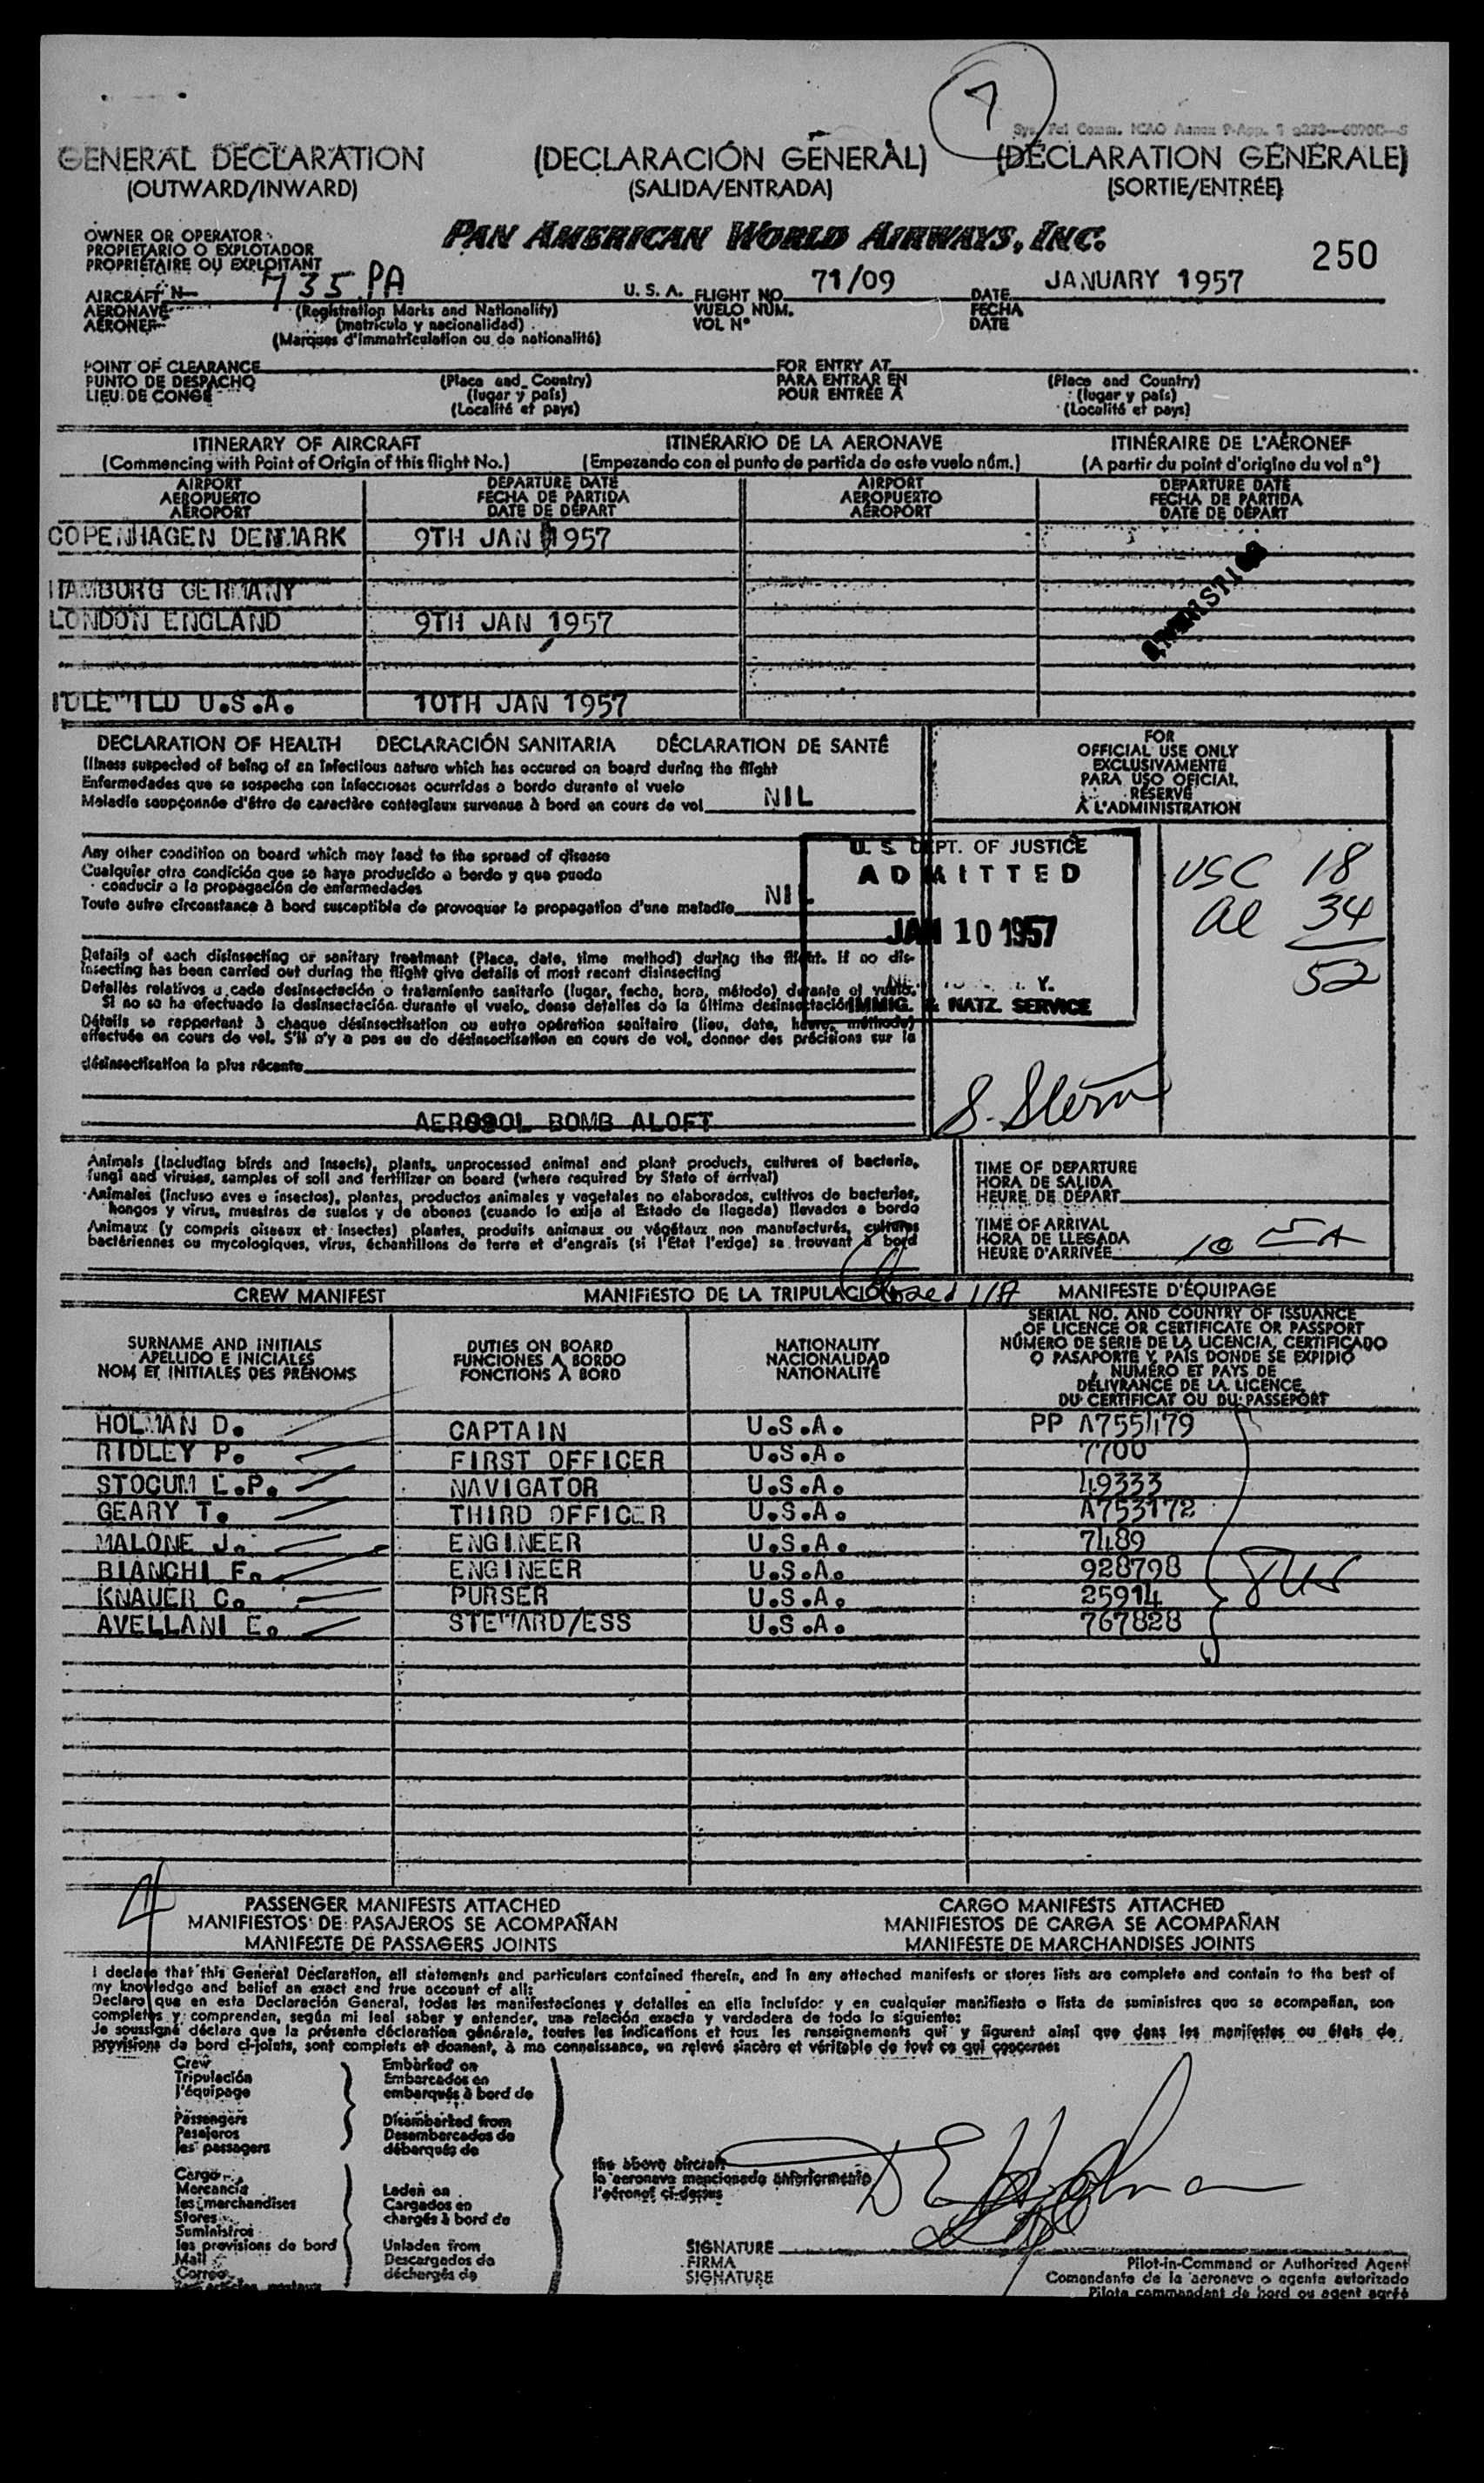 7
Sys. Pal Comm. ICAO Annex 9-App. 1
GENERAL DECLARATION (DECLARACIÓN GENERAL) (DÉCLARATION GÉNÉRALE)
(OUTWARD/INWARD) (SALIDA/ENTRADA) (SORTIE/ENTRÉE)
OWNER OR OPERATOR
PROPIETARIO O EXPLOTADOR
PROPRIÉTAIRE OU EXPLOITANT
PAN AMERICAN WORLD AIRWAYS, INC.
250
AIRCRAFT N 735 PA U. S. A. FLIGHT NO. 71/09 DATE JANUARY 1957
AERONAVE (Registration Marks and Nationality) VUELO NÚM. FECHA
AÉRONEF (matrícula y nacionalidad) VOL Nº DATE
(Marques d'immatriculation ou de nationalité)
POINT OF CLEARANCE FOR ENTRY AT
PUNTO DE DESPACHO (Place and Country) PARA ENTRAR EN (Place and Country)
LIEU DE CONGÉ (lugar y país) POUR ENTRÉE A (lugar y país)
(Localité et pays) (Localité et pays)
ITINERARY OF AIRCRAFT ITINERARIO DE LA AERONAVE ITINÉRAIRE DE L'AÉRONEF
(Commencing with Point of Origin of this flight No.) (Empezando con el punto de partida de este vuelo núm.) (A partir du point d'origine du vol nº)
AIRPORT DEPARTURE DATE AIRPORT DEPARTURE DATE
AEROPUERTO FECHA DE PARTIDA AEROPUERTO FECHA DE PARTIDA
AÉROPORT DATE DE DÉPART AÉROPORT DATE DE DÉPART
COPENHAGEN DENMARK 9TH JAN 1957
HAMBURG GERMANY
LONDON ENGLAND 9TH JAN 1957
IDLEWILD U.S.A. 10TH JAN 1957
DECLARATION OF HEALTH DECLARACIÓN SANITARIA DÉCLARATION DE SANTÉ
Illness suspected of being of an infectious nature which has occured on board during the flight
Enfermedades que se sospecha son infecciosas ocurridas a bordo durante el vuelo
Maladie soupçonnée d'être de caractère contagieux survenue à bord en cours de vol NIL
FOR
OFFICIAL USE ONLY
EXCLUSIVAMENTE
PARA USO OFICIAL
RÉSERVÉ
À L'ADMINISTRATION
Any other condition on board which may lead to the spread of disease
Cualquier otra condición que se haya producido a bordo y que pueda
conducir a la propagación de enfermedades
Toute autre circonstance à bord susceptible de provoquer la propagation d'une maladie NIL
U. S. DEPT. OF JUSTICE
ADMITTED
JAN 10 1957
IMMIG. & NATZ. SERVICE
USC 18
al 34
52
S. Stern
Details of each disinsecting or sanitary treatment (Place, date, time method) during the flight. If no dis-
insecting has been carried out during the flight give details of most recent disinsecting
Detalles relativos a cada desinsectación o tratamiento sanitario (lugar, fecha, hora, método) durante el vuelo.
Si no se ha efectuado la desinsectación durante el vuelo, dense detalles de la última desinsectación
Détails se rapportant à chaque désinsectisation ou autre opération sanitaire (lieu, date, heure, méthode)
effectuée en cours de vol. S'il n'y a pas eu de désinsectisation en cours de vol, donner des précisions sur la
désinsectisation la plus récente
AEROSOL BOMB ALOFT
Animals (including birds and insects), plants, unprocessed animal and plant products, cultures of bacteria,
fungi and viruses, samples of soil and fertilizer on board (where required by State of arrival)
Animales (incluso aves e insectos), plantas, productos animales y vegetales no elaborados, cultivos de bacterias,
hongos y virus, muestras de suelos y de abonos (cuando lo exija al Estado de llegada) llevados a bordo
Animaux (y compris oiseaux et insectes) plantes, produits animaux ou végétaux non manufacturés, cultures
bactériennes ou mycologiques, virus, échantillons de terre et d'engrais (si l'État l'exige) se trouvant à bord
TIME OF DEPARTURE
HORA DE SALIDA
HEURE DE DÉPART
TIME OF ARRIVAL
HORA DE LLEGADA
HEURE D'ARRIVÉE
CREW MANIFEST MANIFIESTO DE LA TRIPULACIÓN MANIFESTE D'ÉQUIPAGE
SURNAME AND INITIALS
APELLIDO E INICIALES
NOM ET INITIALES DES PRÉNOMS
DUTIES ON BOARD
FUNCIONES A BORDO
FONCTIONS À BORD
NATIONALITY
NACIONALIDAD
NATIONALITÉ
SERIAL NO. AND COUNTRY OF ISSUANCE
OF LICENCE OR CERTIFICATE OR PASSPORT
NÚMERO DE SERIE DE LA LICENCIA, CERTIFICADO
O PASAPORTE Y PAÍS DONDE SE EXPIDIÓ
NUMÉRO ET PAYS DE
DÉLIVRANCE DE LA LICENCE
DU CERTIFICAT OU DU PASSEPORT
HOLMAN D. CAPTAIN U.S.A. PP A755479
RIDLEY P. FIRST OFFICER U.S.A. 7700
STOCUM L.P. NAVIGATOR U.S.A. 49333
GEARY T. THIRD OFFICER U.S.A. A753172
MALONE J. ENGINEER U.S.A. 7489
BIANCHI F. ENGINEER U.S.A. 928798
KNAUER C. PURSER U.S.A. 25914
AVELLANI E. STEWARD/ESS U.S.A. 767828
4
PASSENGER MANIFESTS ATTACHED CARGO MANIFESTS ATTACHED
MANIFIESTOS DE PASAJEROS SE ACOMPAÑAN MANIFIESTOS DE CARGA SE ACOMPAÑAN
MANIFESTE DE PASSAGERS JOINTS MANIFESTE DE MARCHANDISES JOINTS
I declare that this General Declaration, all statements and particulars contained therein, and in any attached manifests or stores lists are complete and contain to the best of
my knowledge and belief an exact and true account of all:
Declaro que en esta Declaración General, todas las manifestaciones y detalles en ella incluídos y en cualquier manifiesto o lista de suministros que se acompañan, son
completos y comprenden, según mi leal saber y entender, una relación exacta y verdadera de todo lo siguiente:
Je soussigné déclare que la présente déclaration générale, toutes les indications et tous les renseignements qui y figurent ainsi que dans les manifestes ou états de
provisions de bord ci-joints, sont complets et donnent, à ma connaissance, un relevé sincère et véritable de tout ce qui concernes
Crew
Tripulación
l'équipage
Passengers
Pasajeros
les passagers
Cargo
Mercancía
les marchandises
Stores
Suministros
les provisions de bord
Mail
Correo
Embarked on
Embarcados en
embarqués à bord de
Disembarked from
Desembarcados de
débarqués de
Laden on
Cargados en
chargés à bord de
Unladen from
Descargados de
déchargés de
the above aircraft
la aeronave mencionada anteriormente
l'aéronef ci-dessus
D E Holman
SIGNATURE
FIRMA
SIGNATURE
Pilot-in-Command or Authorized Agent
Comandante de la aeronave o agente autorizado
Pilote commandant de bord ou agent agréé